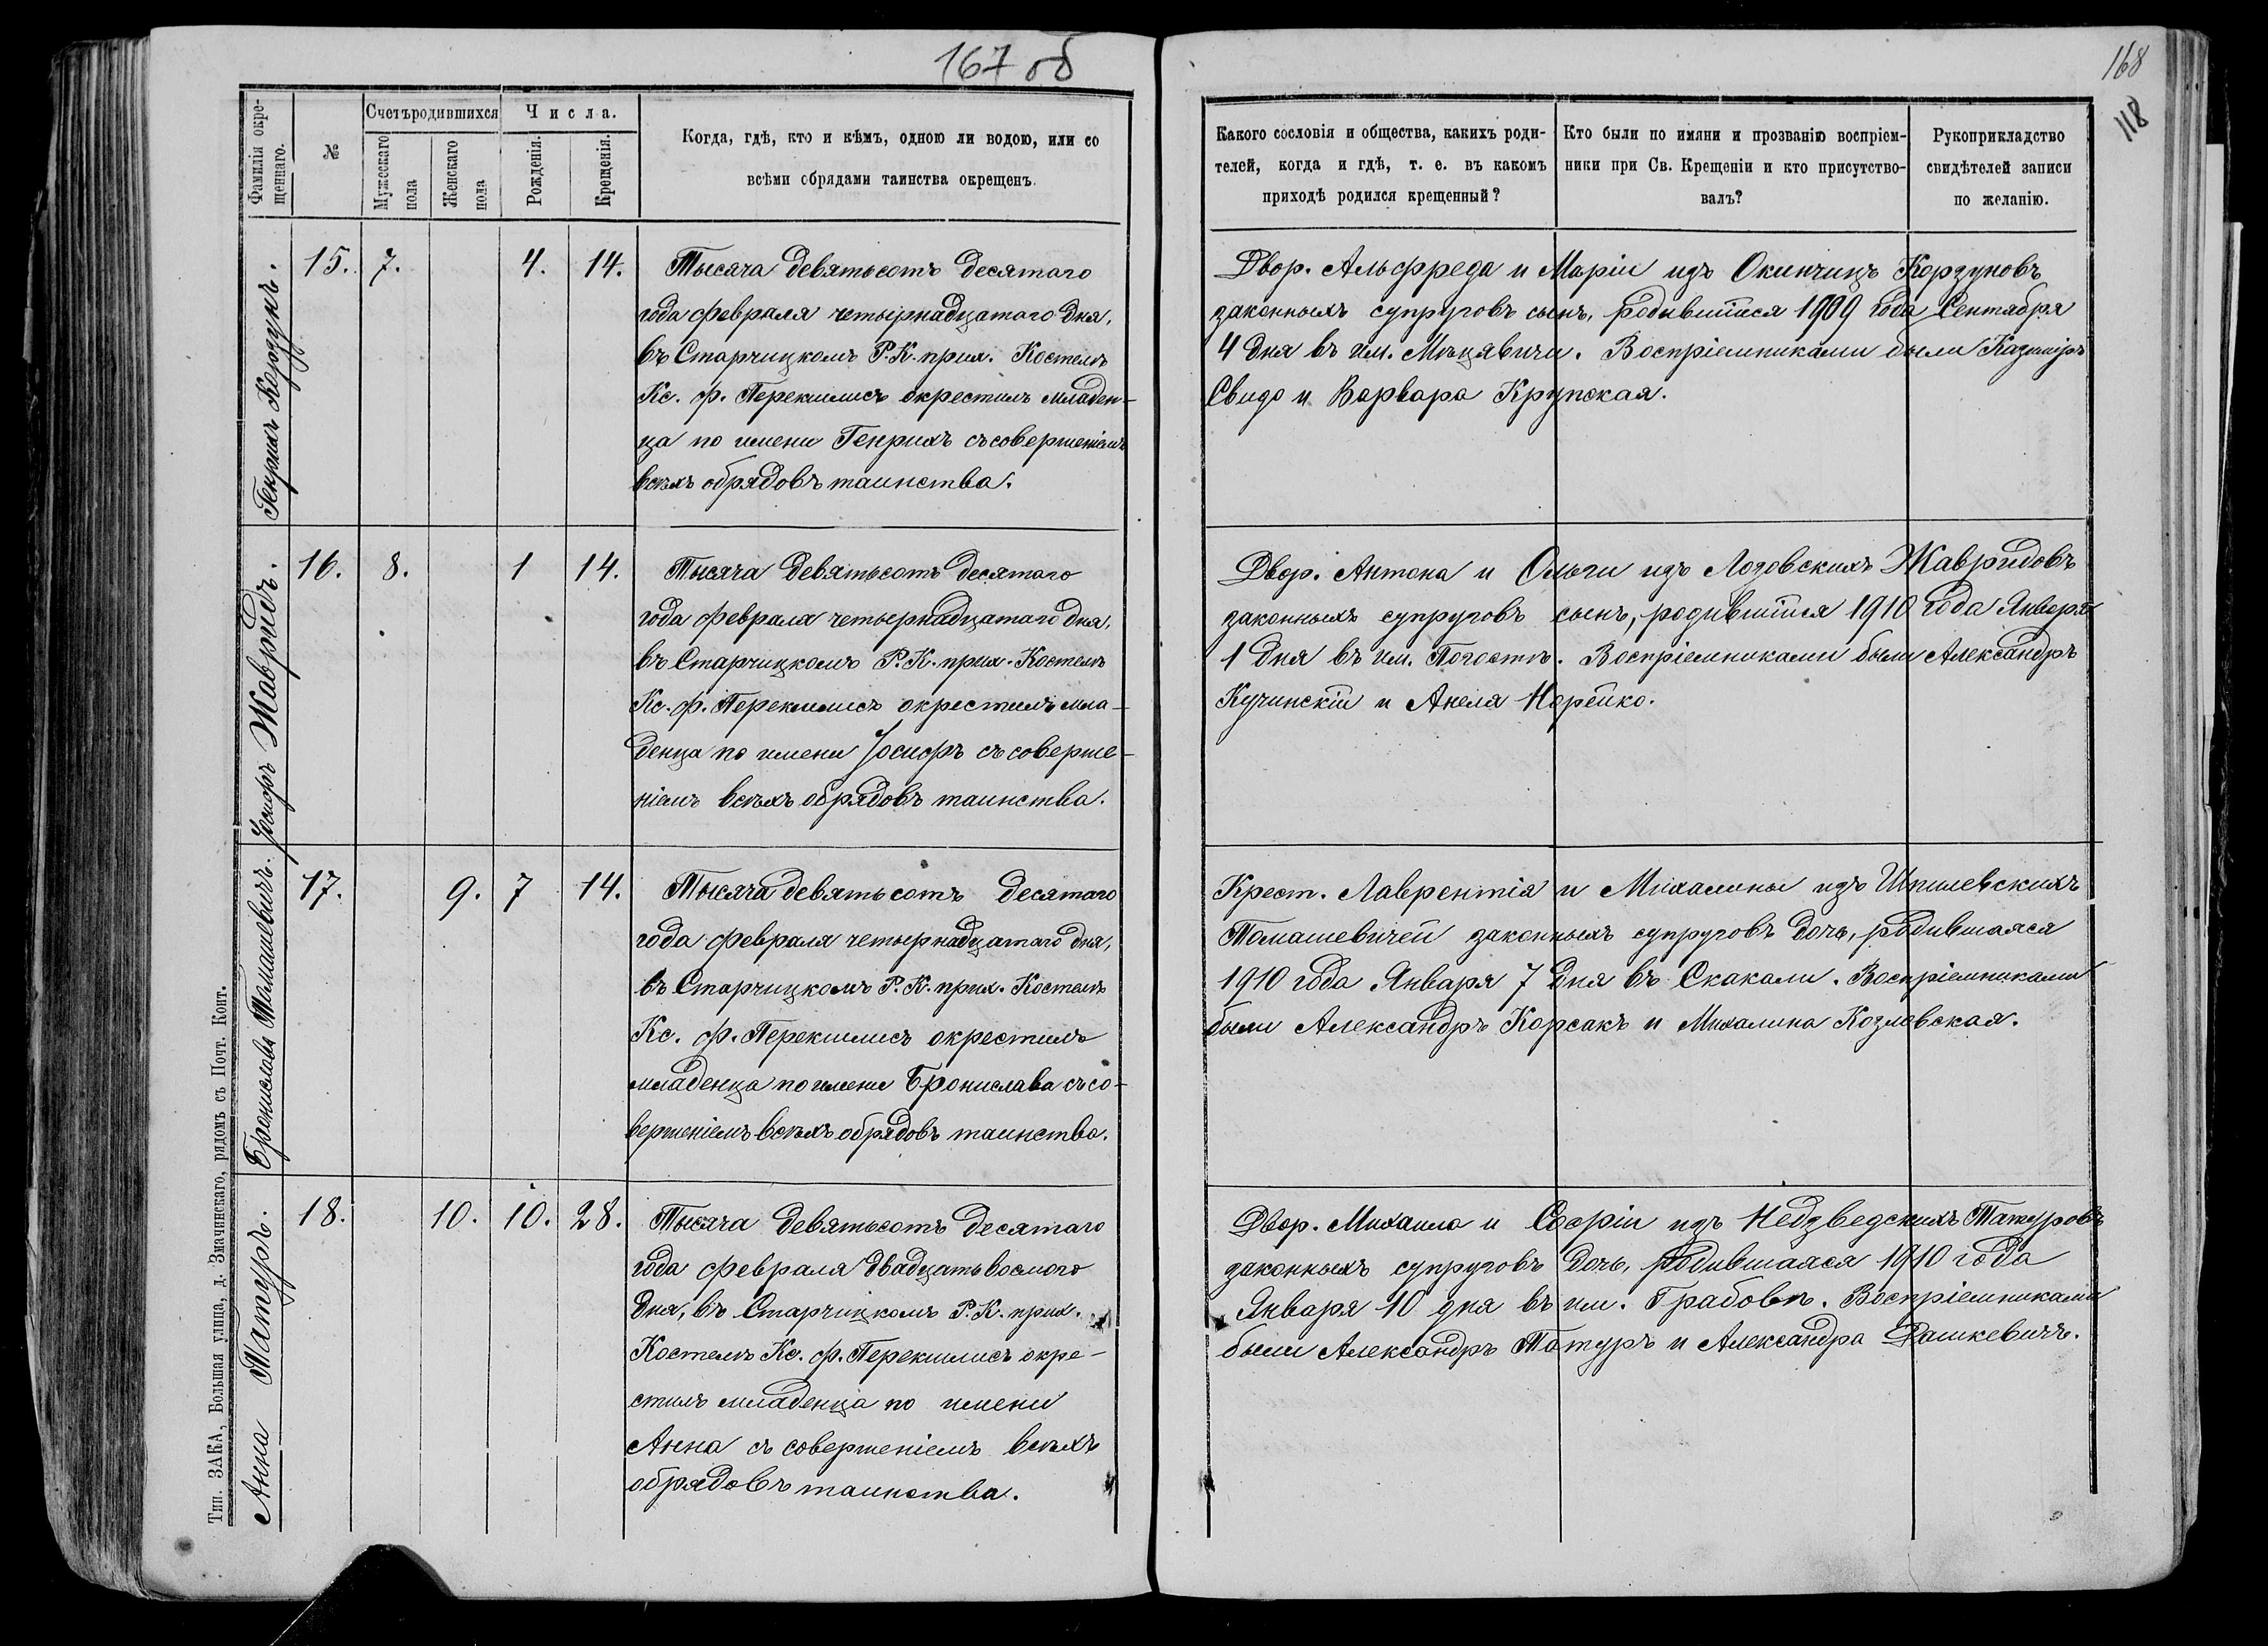 167 об
Фамилія окре-
щеннаго.
№
Счетъ родившихся
Мужескаго
пола
Женскаго
пола
Числа.
Рожденія.
Крещенія.
Когда, гдѣ, кто и кѣмъ, одною ли водою, или со
всѣми обрядами таинства окрещенъ.
Генрихъ Кордзукъ.
15. 7. 4. 14.
Тысяча девятьсотъ десятаго
года февраля четырнадцатаго дня,
въ Старчицкомъ Р.К. прих. Костелѣ
Кс. Ф. Перекшлисъ окрестилъ младен-
ца по имени Генрихъ съ совершеніемъ
всѣхъ обрядовъ таинства.
Іосифъ Жавридъ.
16. 8. 1 14.
Тысяча девятьсотъ десятаго
года февраля четырнадцатаго дня,
въ Старчицкомъ Р.К. прих. Костелѣ
Кс. Ф. Перекшлисъ окрестилъ мла-
денца по имени Іосифъ съ соверше-
ніемъ всѣхъ обрядовъ таинства.
Бронислава Томашевичъ.
17. 9. 7 14.
Тысяча девятьсотъ десятаго
года февраля четырнадцатаго дня,
въ Старчицкомъ Р.К. прих. Костелѣ
Кс. Ф. Перекшлисъ окрестилъ
младенца по имени Бронислава съ со-
вершеніемъ всѣхъ обрядовъ таинства.
Анна Татуръ.
18. 10. 10. 28.
Тысяча девятьсотъ десятаго
года февраля двадцать восмого
дня, въ Старчицкомъ Р.К. прих.
Костелѣ Кс. Ф. Перекшлисъ окре-
стилъ младенца по имени
Анна съ совершеніемъ всѣхъ
обрядовъ таинства.
Тип. ЗАКА, Большая улица, д. Значинскаго, рядомъ съ Почт. Конт.
168
118
Какого сословія и общества, какихъ роди-
телей, когда и гдѣ, т. е. въ какомъ
приходѣ родился крещенный?
Кто были по имяни и прозванію воспріем-
ники при Св. Крещеніи и кто присутство-
валъ?
Рукоприкладство
свидѣтелей записи
по желанію.
Двор. Альфреда и Маріи изъ Окинчицъ Кордзуковъ
законныхъ супруговъ сынъ, родившійся 1909 года Сентября
4 дня въ им. Мѣцявичи. Воспріемниками были Казиміръ
Свидо и Варвара Крупская.
Двор. Антона и Ольги изъ Лозовскихъ Жавридовъ
законныхъ супруговъ сынъ, родившійся 1910 года Января
1 дня въ им. Погостѣ. Воспріемниками были Александръ
Кучинскій и Анеля Норейко.
Крест. Лаврентія и Михалины изъ Шпилевскихъ
Томашевичей законныхъ супруговъ дочь, родившаяся
1910 года Января 7 дня въ Скакали. Воспріемниками
были Александръ Корсакъ и Михалина Козлевская.
Двор. Михаила и Софіи изъ Недзведскихъ Татуровъ
законныхъ супруговъ дочь, родившаяся 1910 года
Января 10 дня въ им. Грабовѣ. Воспріемниками
были Александръ Татуръ и Александра Рашкевичъ.